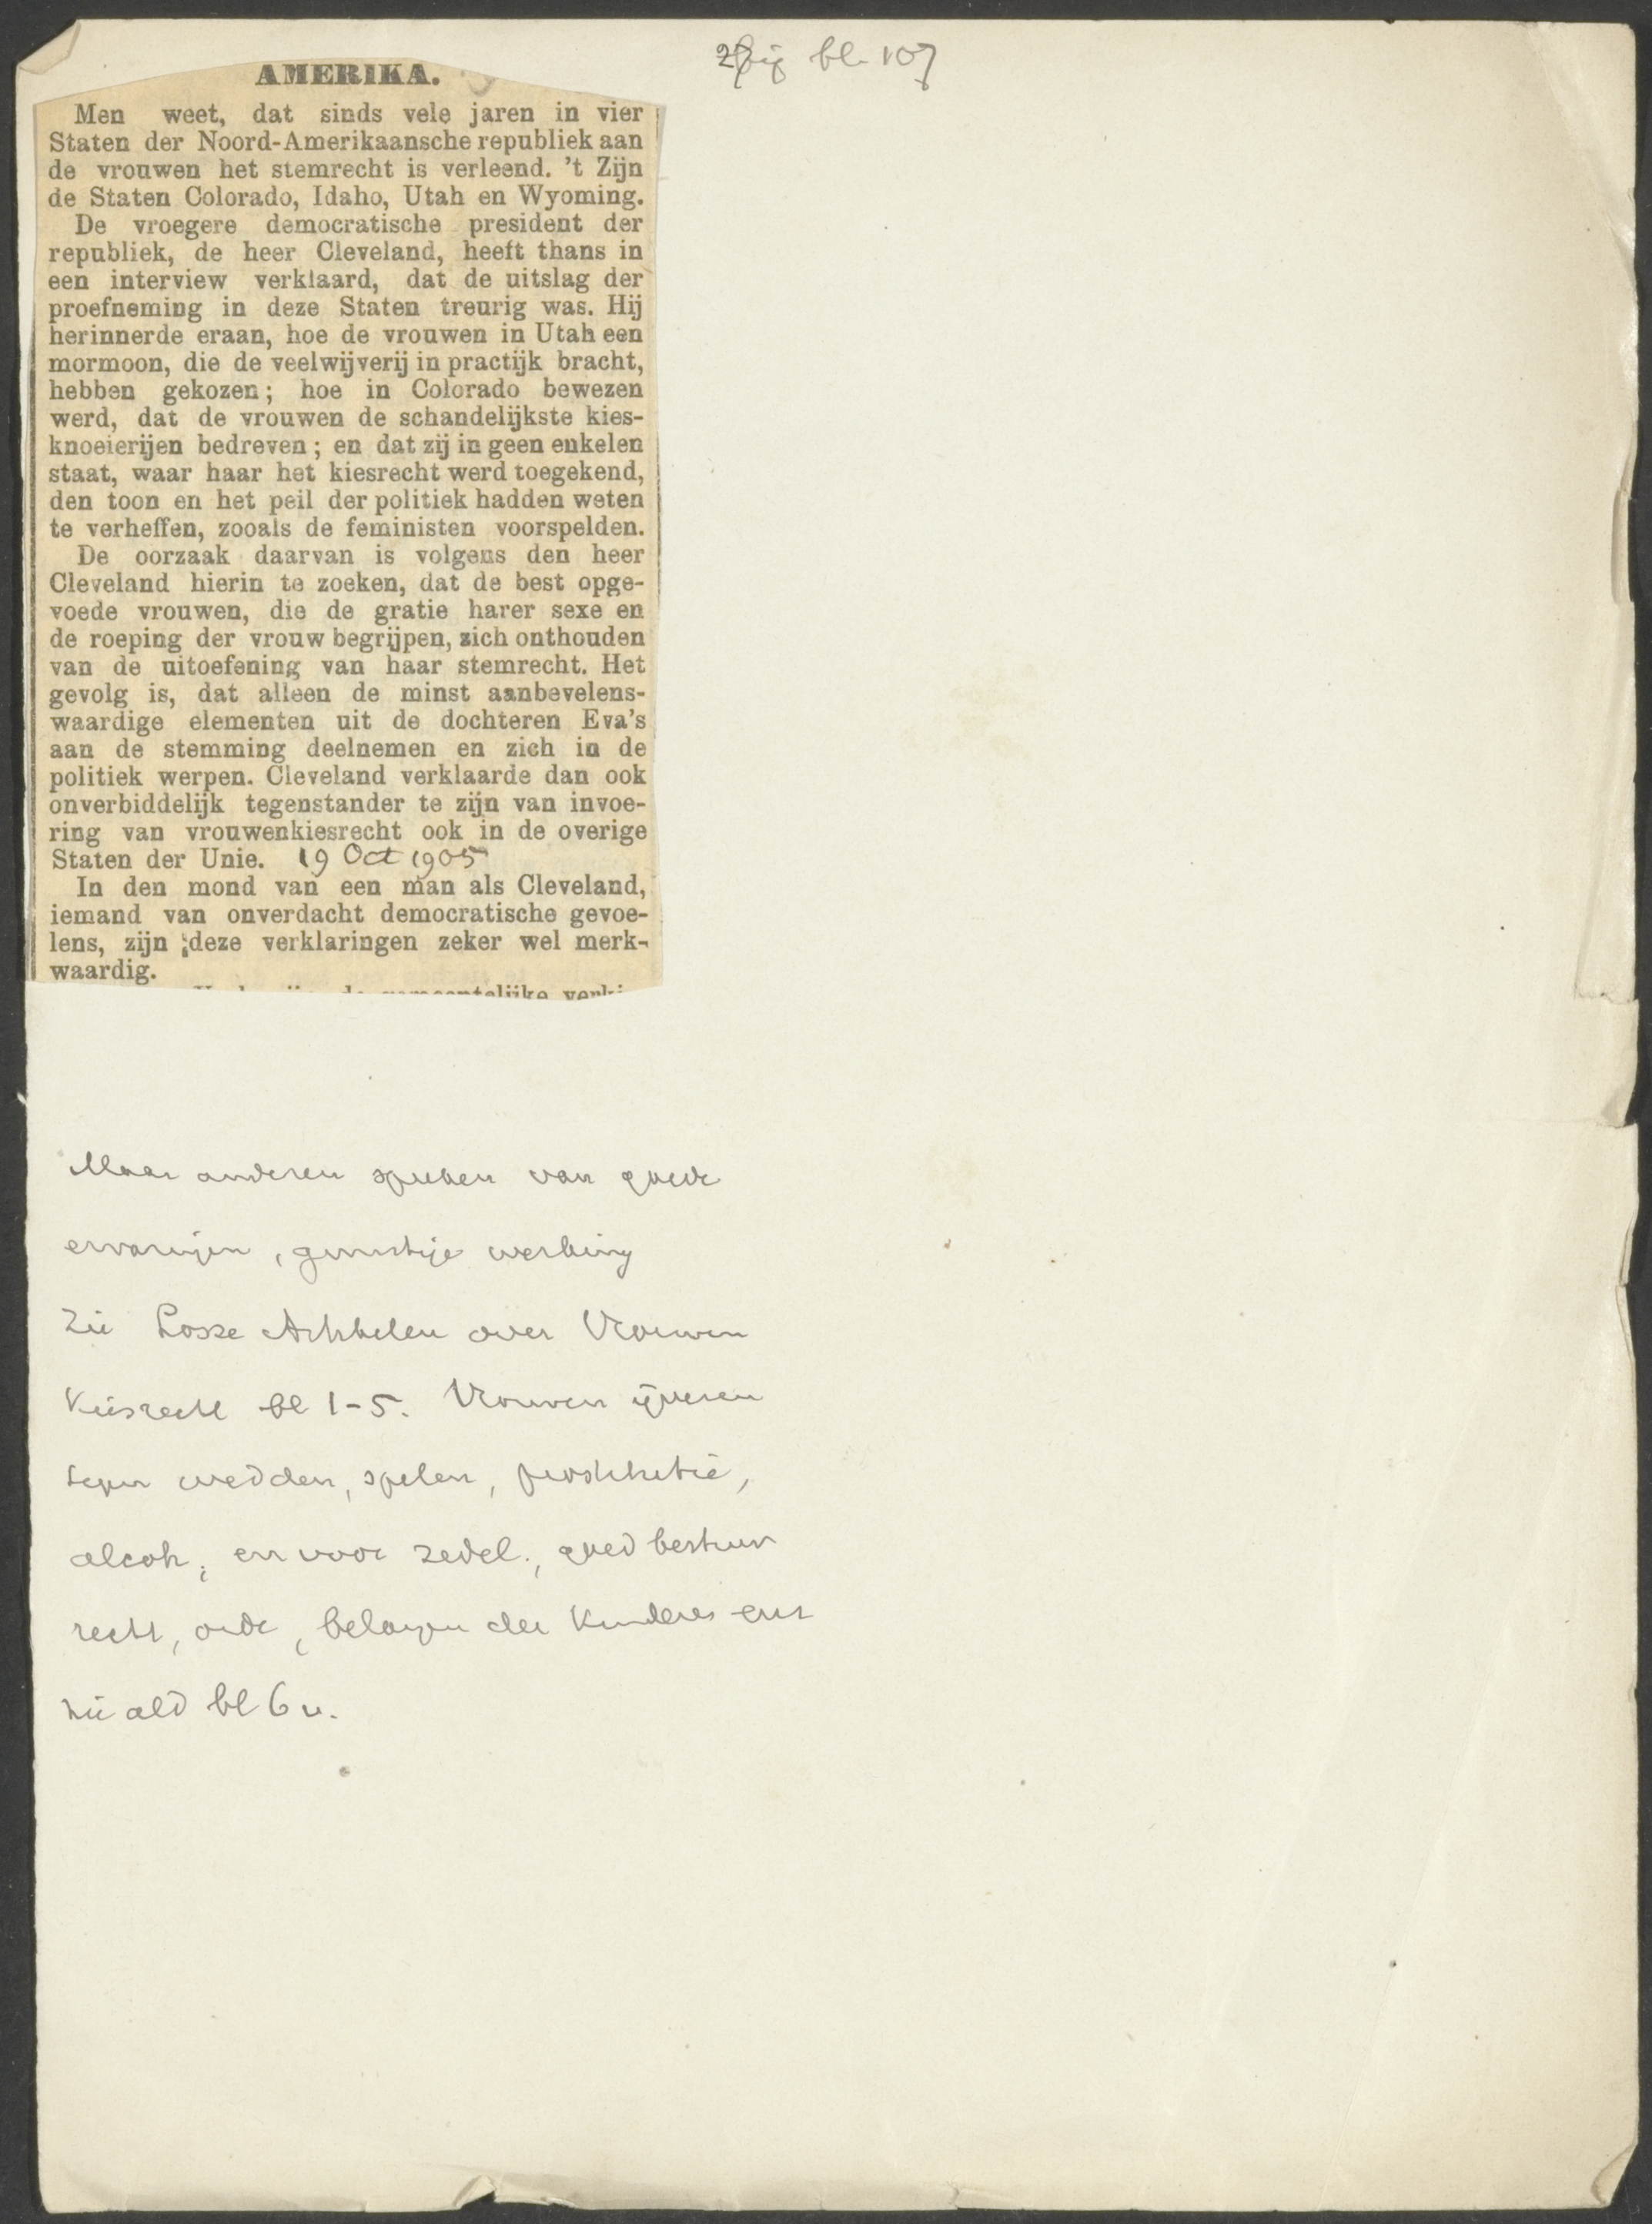 bij bl. 107
AMERIKA.
Men weet, dat sinds vele jaren in vier
Staten der Noord-Amerikaansche republiek aan
de vrouwen het stemrecht is verleend. 't Zijn
de Staten Colorado, Idaho, Utah en Wyoming.
De vroegere democratische president der
republiek, de heer Cleveland, heeft thans in
een interview verklaard, dat de uitslag der
proefneming in deze Staten treurig was. Hij
herinnerde eraan, hoe de vrouwen in Utah een
mormoon, die de veelwijverij in practijk bracht,
hebben gekozen; hoe in Colorado bewezen
werd, dat de vrouwen de schandelijkste kies-
knoeierijen bedreven; en dat zij in geen enkelen
staat, waar haar het kiesrecht werd toegekend,
den toon en het peil der politiek hadden weten
te verheffen, zooals de feministen voorspelden.
De oorzaak daarvan is volgens den heer
Cleveland hierin te zoeken, dat de best opge-
voede vrouwen, die de gratie harer sexe en
de roeping der vrouw begrijpen, zich onthouden
van de uitoefening van haar stemrecht. Het
gevolg is, dat alleen de minst aanbevelens-
waardige elementen uit de dochteren Eva's
aan de stemming deelnemen en zich in de
politiek werpen. Cleveland verklaarde dan ook
onverbiddelijk tegenstander te zijn van invoe-
ring van vrouwenkiesrecht ook in de overige
Staten der Unie. 19 Oct 1905
In den mond van een man als Cleveland,
iemand van onverdacht democratische gevoe-
lens, zijn deze verklaringen zeker wel merk-
waardig.
de gemeentelijke
Maar anderen spreken van goede
ervaringen, gunstige werking
Zie Losse Artikelen over Vrouwen
Kiesrecht bl 1-5. Vrouwen ijveren
tegen wedden, spelen, prostitutie,
alcoh, en voor zedel., goed bestuur
recht, orde, belangen der Kinderen enz
zie ald bl 6 v.